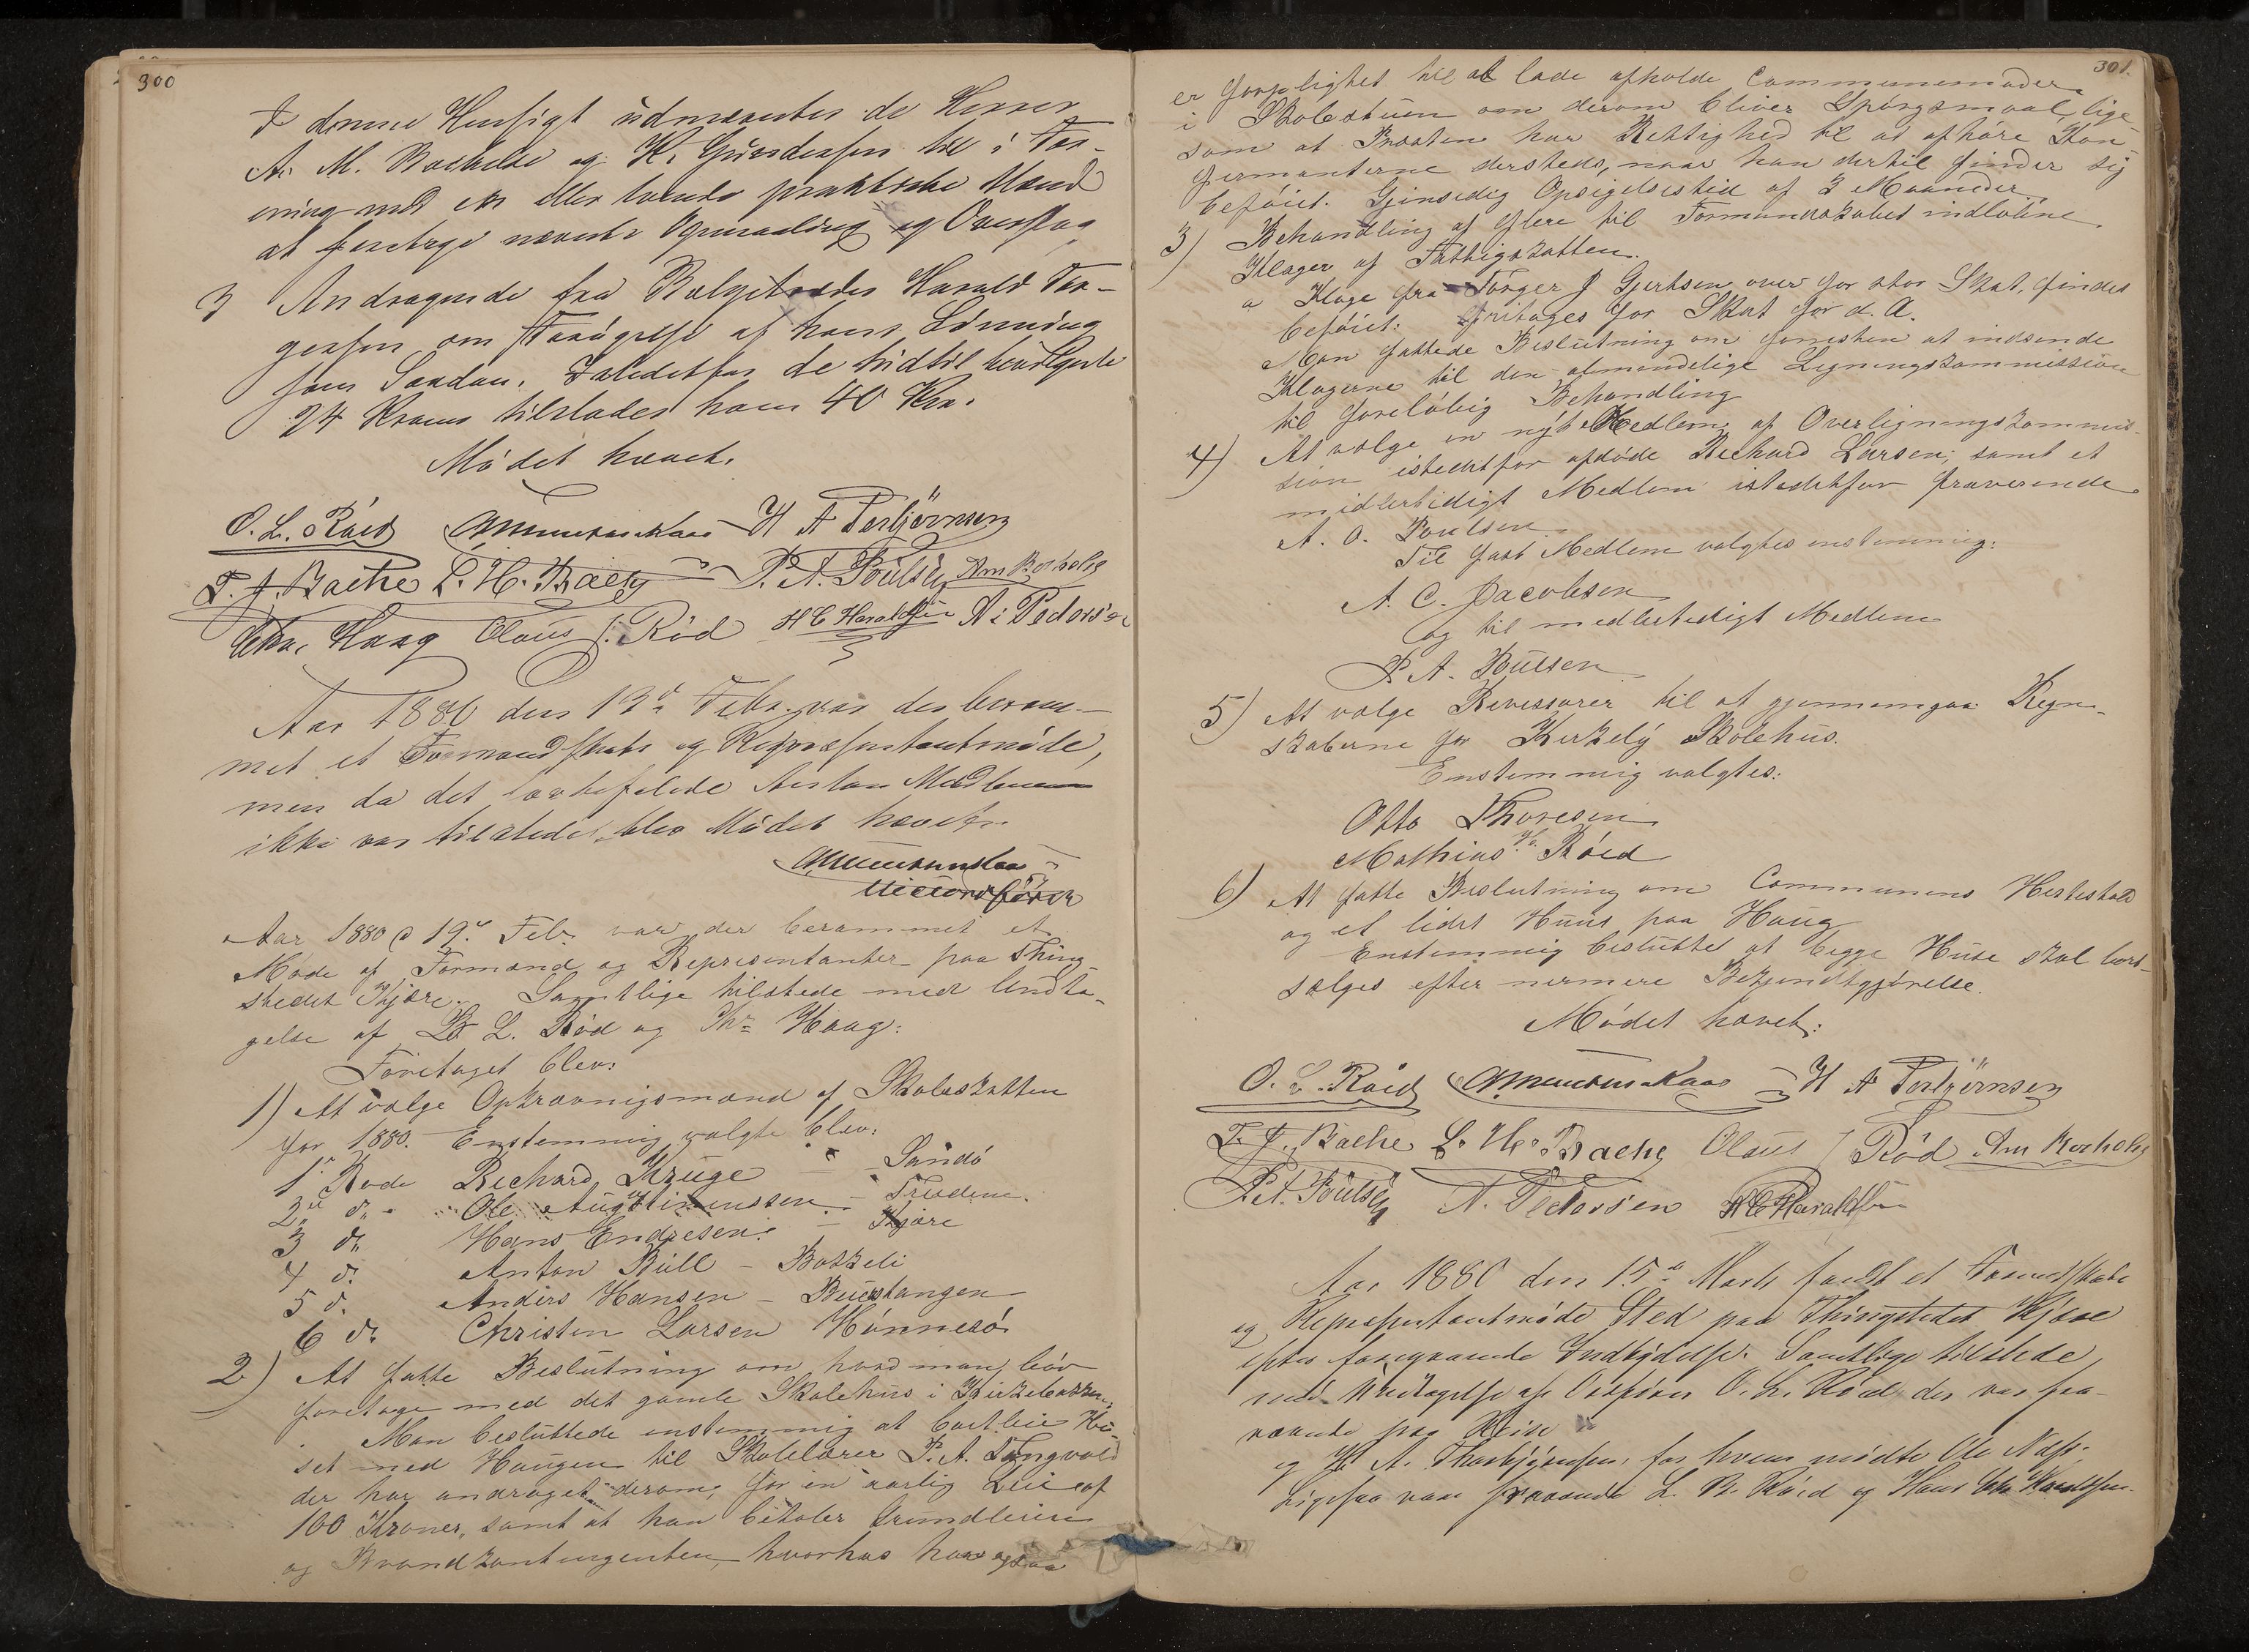 300
I denne Hensigt udnævntes de Herrer
A. M. Bockelie og K. Gundersen til i For-
ening med en eller tvende praktiske Mænd
at foretage nævnte Opmaaling og Overslag
3 Andragende fra Harald Tor-
gersen om Forøgelse af hans Lønning
som Saadan. Istedetfor de hidtil
24 Kroner tilstodes ham 40 Kr.
Mødet hævet.
O. L. Röed H A Torbjörnsen
T. J. Bache L. H. Bache P. A. Poulsen
Chr. Haag Olaus J. Röd H C Haraldsen A: Pedersen
Aar 1880 den 13de Febr. var der beram-
met et Formandskabs og Repræsentantmøde,
men da det lovbefalede Antal Medlemmer
ikke var tilstede, blev Mødet hævet.
Aar 1880 d 19de Feb. var der berammet et
Møde af Formænd og Representanter paa Thing-
stedet Kjære. Samtlige tilstede med Undta-
gelse af L. Röd og Chr Haag:
Foretaget blev:
1) At vælge Opkrævnigsmænd af Skoleskatten
for 1880. Enstemmig valgte blev:
1te Rode Richard Kruge — Sandö
2den do Ole — 
3 do Hans Endresen — Kjære
4 do Anton Bull —
5 do Anders Hansen —
6 do Christen Larsen
2) At fatte Beslutning om hvad man bör
foretage med det gamle Skolehus i
Man besluttede enstemmig at bortleie Hu-
set med Haugen til Skolelærer P. A. Tangvald
der har andraget derom, for en aarlig Leie af
100 Kroner, samt at han betaler Grundleien
og Brandkontingenten, hvorhos han ogsaa
301.
er forpligtet til at lade afholde Communemøder
i Skolestuen om derom bliver Spörgsmaal, lige-
som at Præsten har Rettighed til at afhöre Kon-
firmanterne dersteds, naar han dertil finder sig
beföiet. Gjensedig Opsigelsestid af 3 Maaneder.
3) Behandling af flere til Formandskabet indlöbne
Klager af Fattigskatten.
a Klage fra Torger J Gjertsen over for stor Skat, findes
beföiet. fritages for Skat for d. A.
Man fattede Beslutning om forresten at indsende
Klagerne til den almindelige Ligningskommission
til foreløbig Behandling
4) At vælge en nyt Medlem af Overligningskommis-
sion istedetfor afdöde Richard Larsen, samt et
midlertidigt Medlem istedetfor fraværende
A. O. Poulsen
Til fast Medlem valgtes enstemmig:
A. C. Jacobsen
og til medlertidigt Medlem
P. A. Poulsen
5) At vælge Revissorer til at gjennemgaa Regn-
skaberne for Kirkely Skolehus.
Enstemmig valgtes:
Otto Thoresen
Mathias H. Röed
6) At fatte Beslutning om Communens Hestestald
og et lidet Huus paa Haug
Enstemmig besluttet at begge Huse skal bort-
sælges efter nermere Bekjendtgjörelse.
Mödet hævet:
O. L. Röed H A Torbjörnsen
T. J. Bache L. H. Bache Olaus J Röd
P. A. Poulsen A. Pedersen H C Haraldsen
Aar 1880 den 15de Marts holdt et Formandskabs
og Repræsentantmøde Sted paa Thingstedet Kjære
efter foregaaende Indbydelse. Samtlige tilstede,
med Undtagelse af Ordfører O. L. Röed der var fra-
værende paa Reise
og H. A. Thorbjörnsen, for hvem mødte Ole Næss.
Ligesaa var fraværende L. B. Röed og Hans Chr Haraldsen.